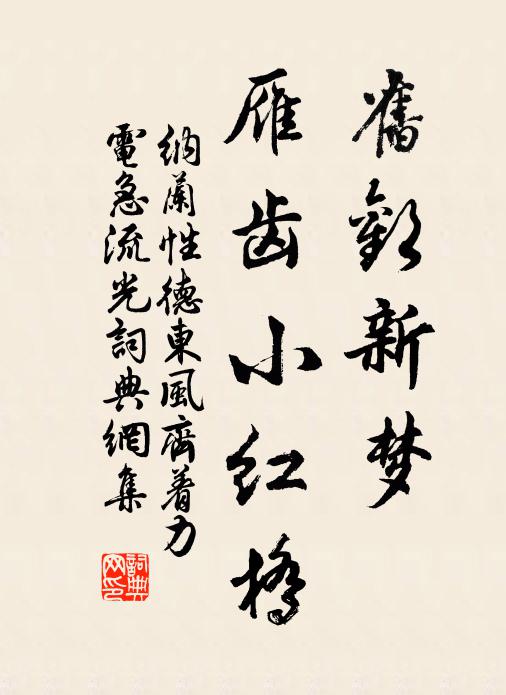 舊歡新梦
雁齿小红橋
纳蘭性德東風齊着力
電急流光詞典網集
詞典网印